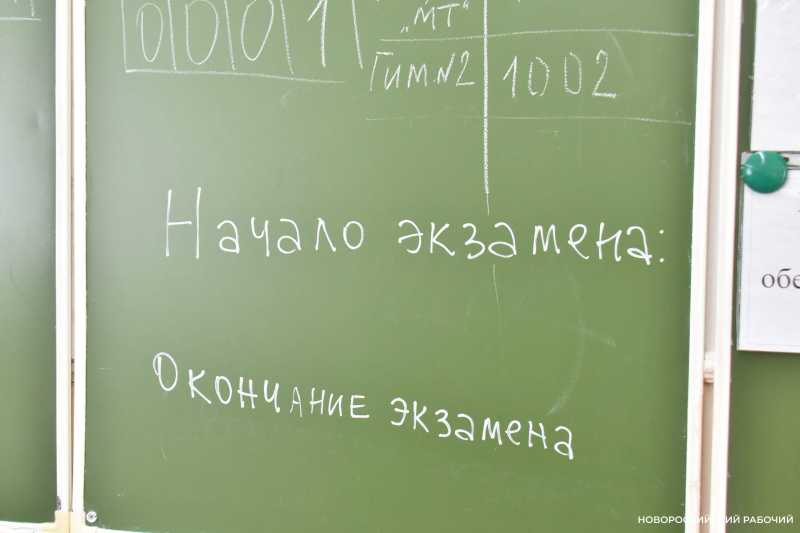 0001
„МТ“
Гим.N2 1002
Начало экзамена:
Окончание экзамена
обе
НОВОРОССИЙСКИЙ РАБОЧИЙ